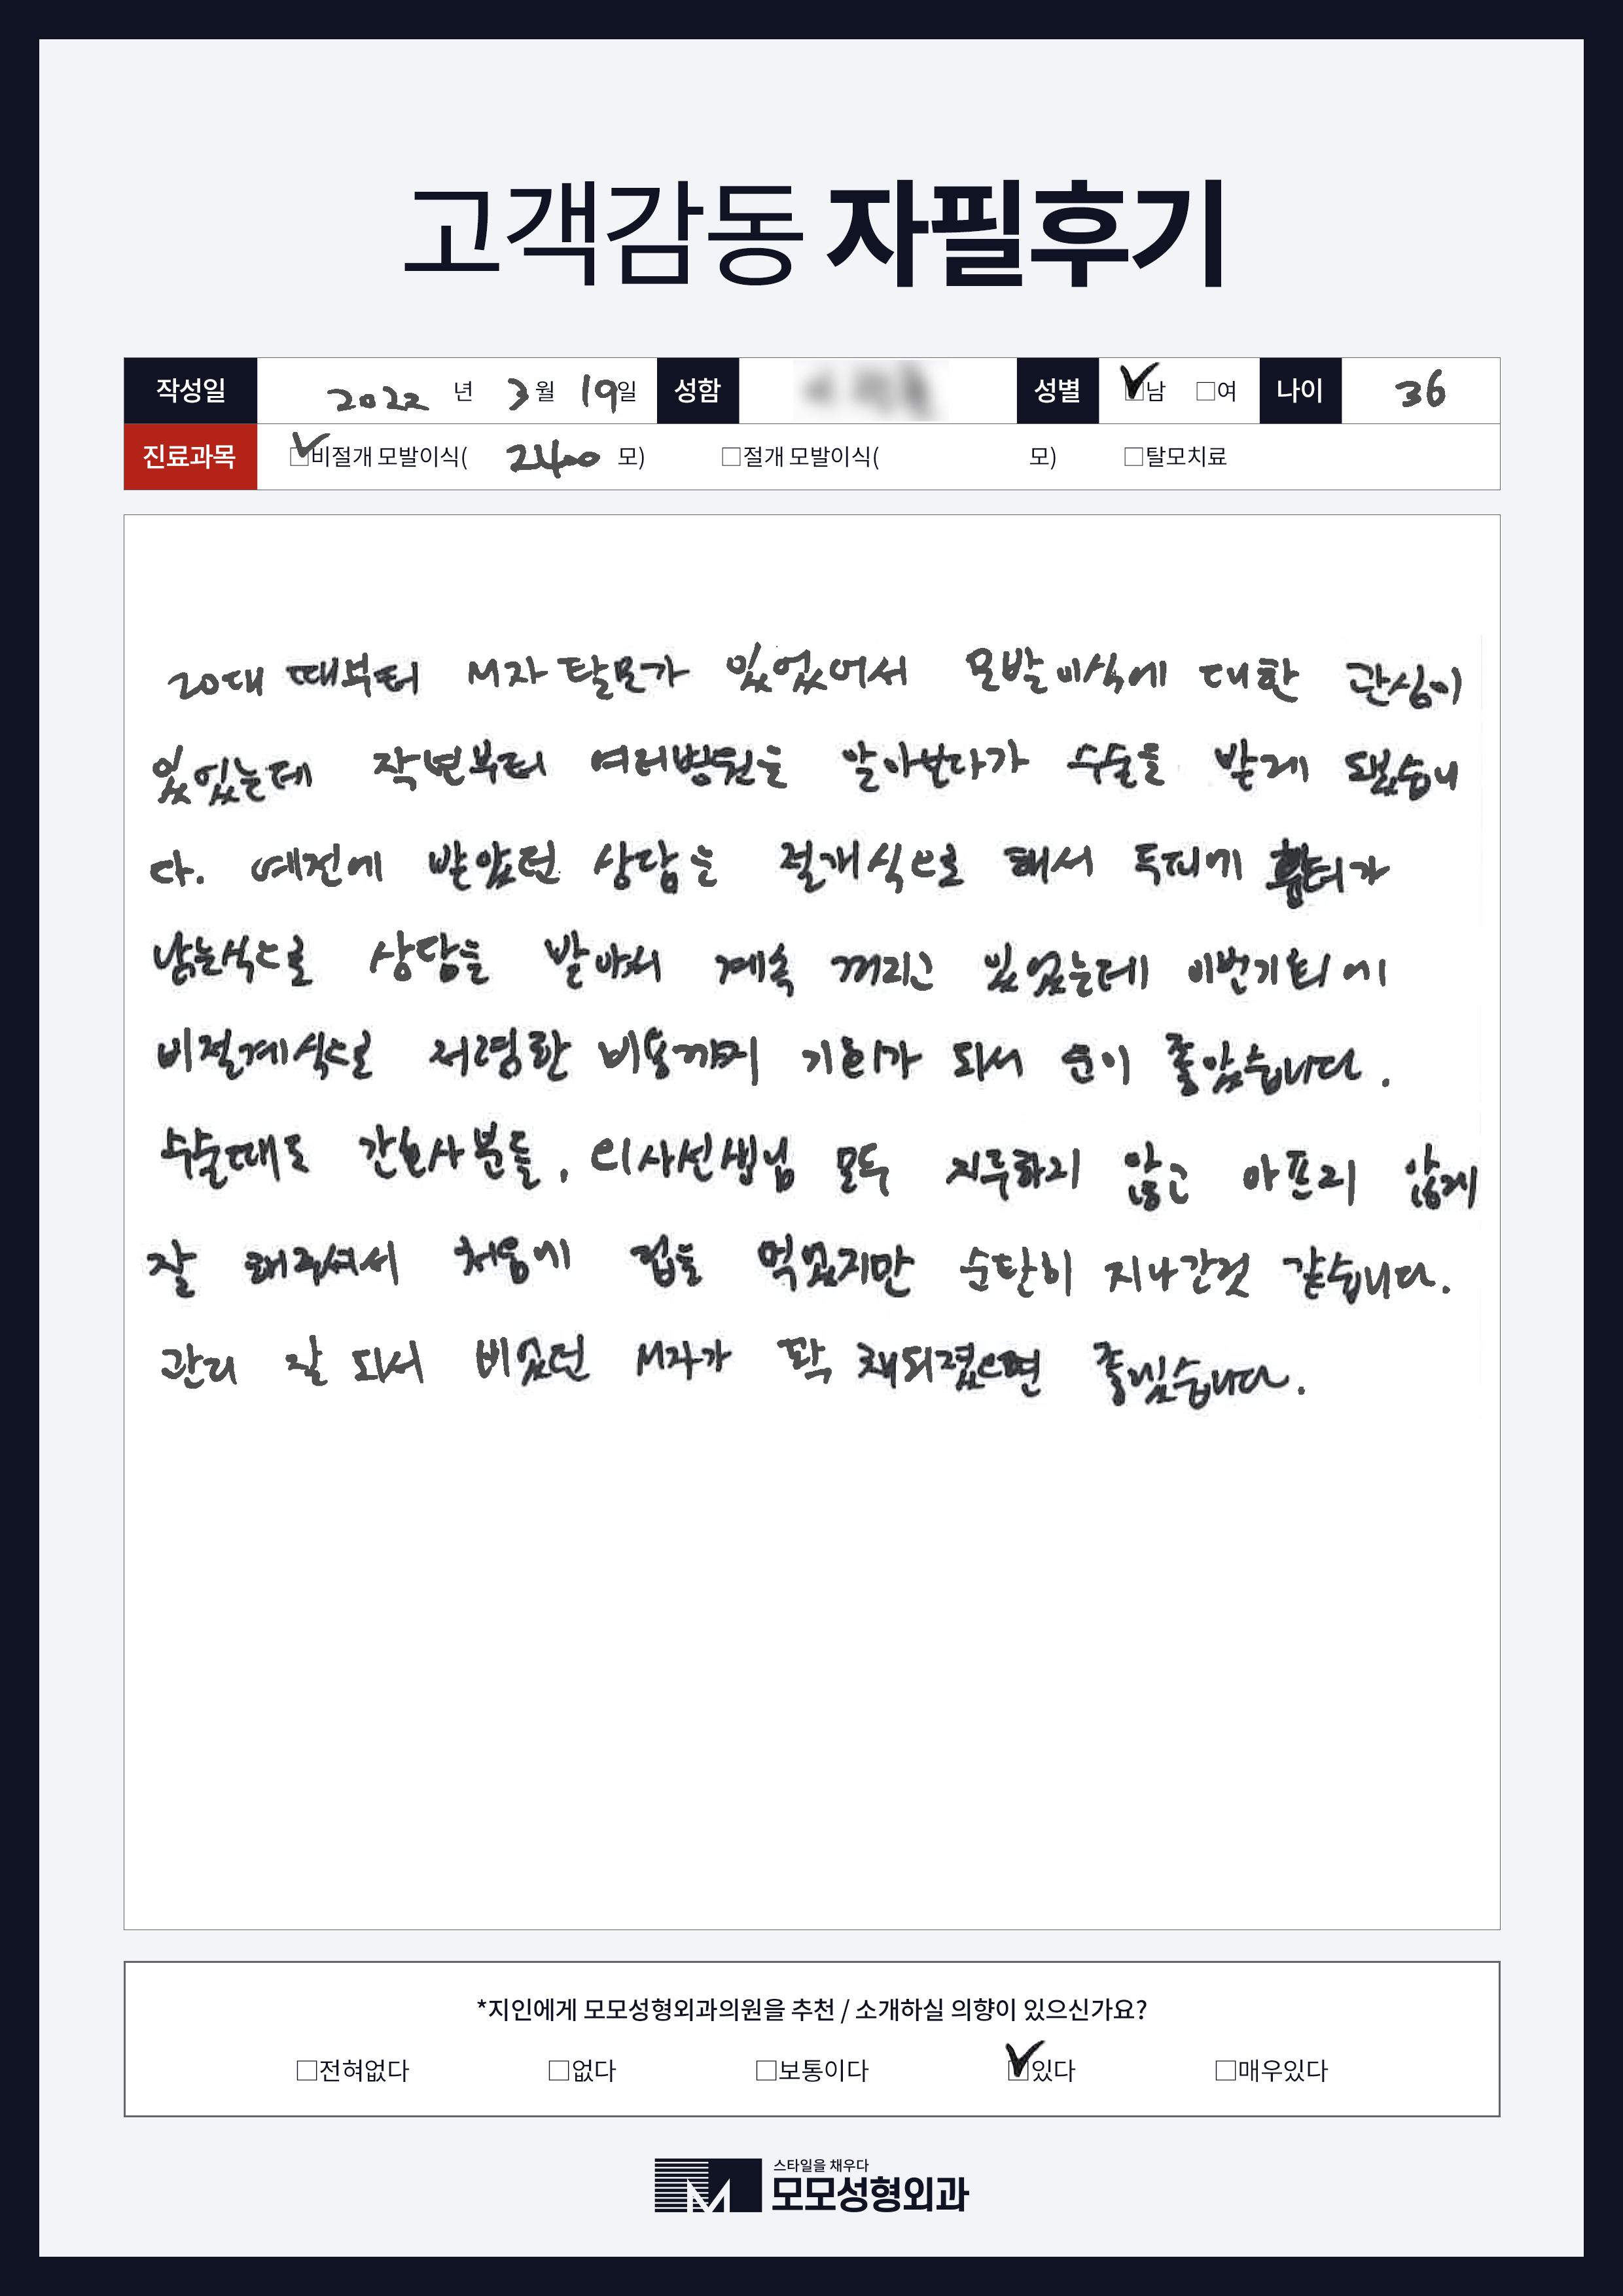 고객감동 자필후기
작성일 2022 년 3 월 19일 성함 성별 ☑남 □여 나이 36
진료과목 ☑비절개 모발이식( 2400 모) □절개 모발이식( 모) □탈모치료
20대 때부터 M자 탈모가 있었어서 모발이식에 대한 관심이
있었는데 작년부터 여러병원을 알아보다가 수술을 받게 됐습니
다. 예전에 받았던 상담은 절개식으로 해서 두피에 흉터가
남는식으로 상담을 받아서 계속 꺼리고 있었는데 이번기회에
비절계식으로 저렴한 비용까지 기회가 되서 운이 좋았습니다.
수술때도 간호사분들, 의사선생님 모두 지루하지 않고 아프지 않게
잘 해주셔서 처음에 겁을 먹었지만 순탄히 지나간것 같습니다.
관리 잘 되서 비었던 M자가 꽉 채워졌으면 좋겠습니다.
*지인에게 모모성형외과의원을 추천 / 소개하실 의향이 있으신가요?
□전혀없다 □없다 □보통이다 ☑있다 □매우있다
스타일을 채우다
모모성형외과